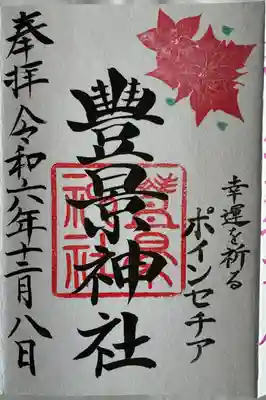 幸運を祈る
ポインセチア
豊景神社
豐景神社
奉拝 令和六年十二月八日